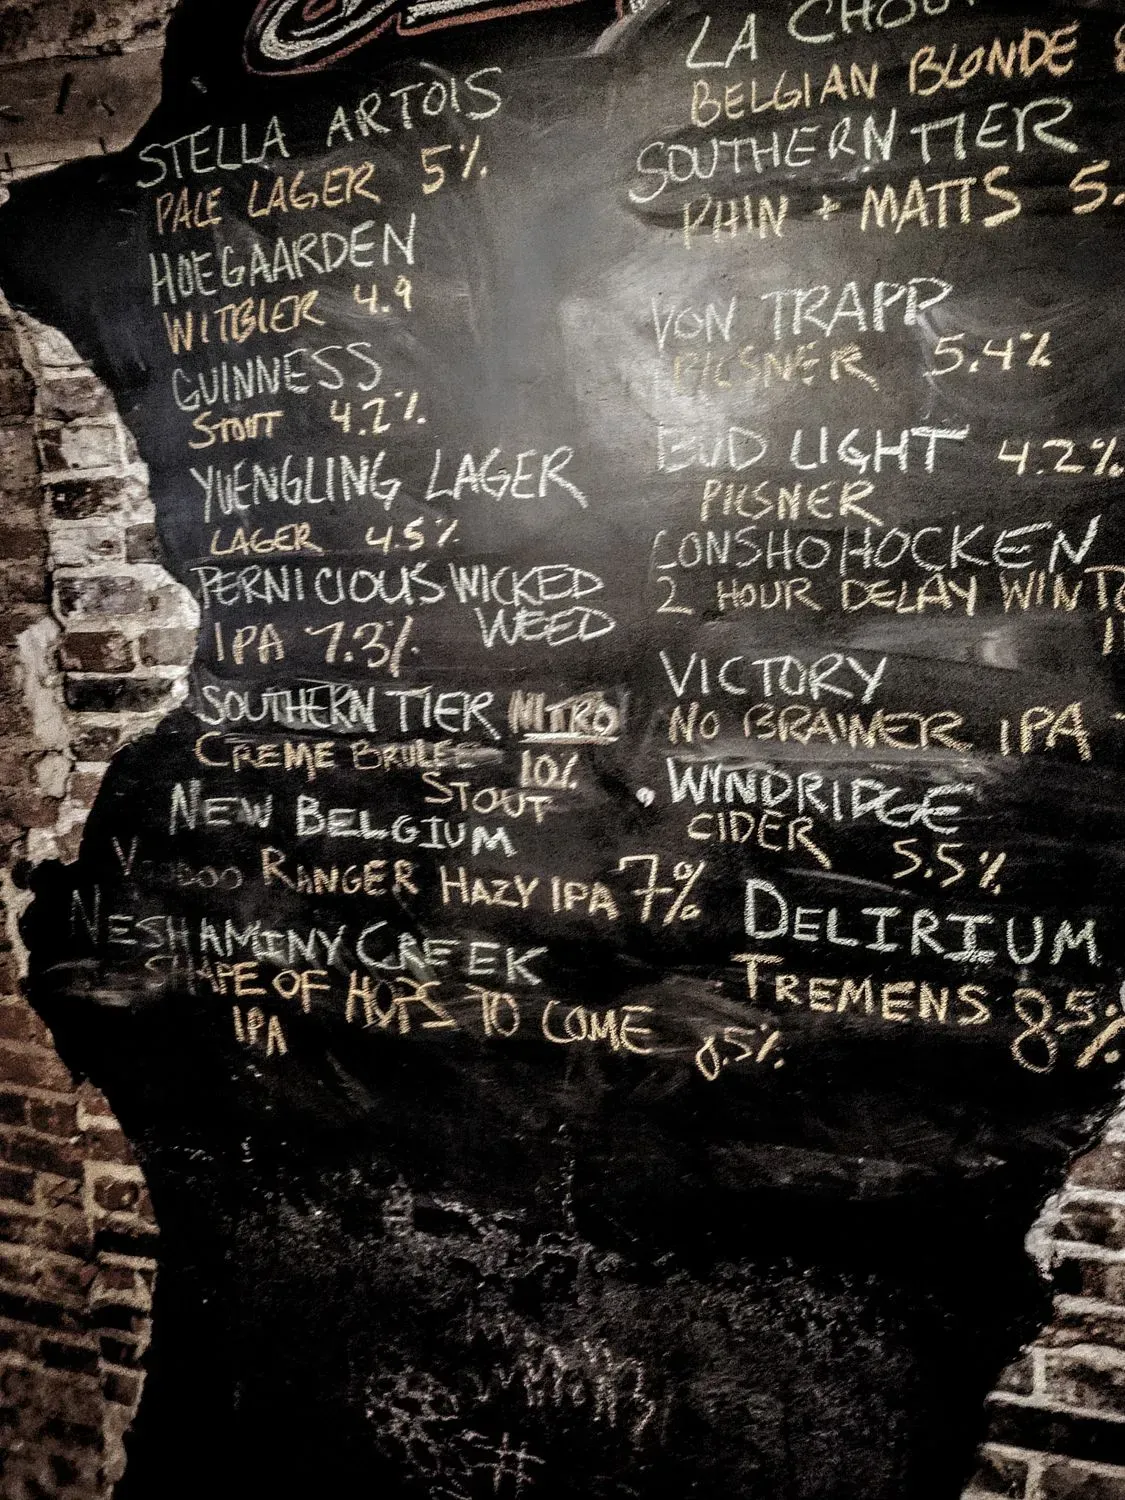 STELLA ARTOIS
PALE LAGER 5%
HOEGAARDEN
WITBIER 4.9
GUINNESS
STOUT 4.2%
YUENGLING LAGER
LAGER 4.5%
PERNICIOUS WICKED
WEED
IPA 7.3%
SOUTHERN TIER NITRO
CREME BRULEE 10%
STOUT
NEW BELGIUM
VOODOO RANGER HAZY IPA 7%
NESHAMINY CREEK
SHAPE OF HOPS TO COME 8.5%
IPA
LA CHOU
BELGIAN BLONDE 8
SOUTHERN TIER
PHIN + MATTS 5.
VON TRAPP
PILSNER 5.4%
BUD LIGHT 4.2%
PILSNER
CONSHOHOCKEN
2 HOUR DELAY WINT
VICTORY
NO BRAINER IPA
WINDRIDGE
CIDER 5.5%
DELIRIUM
TREMENS 8.5%